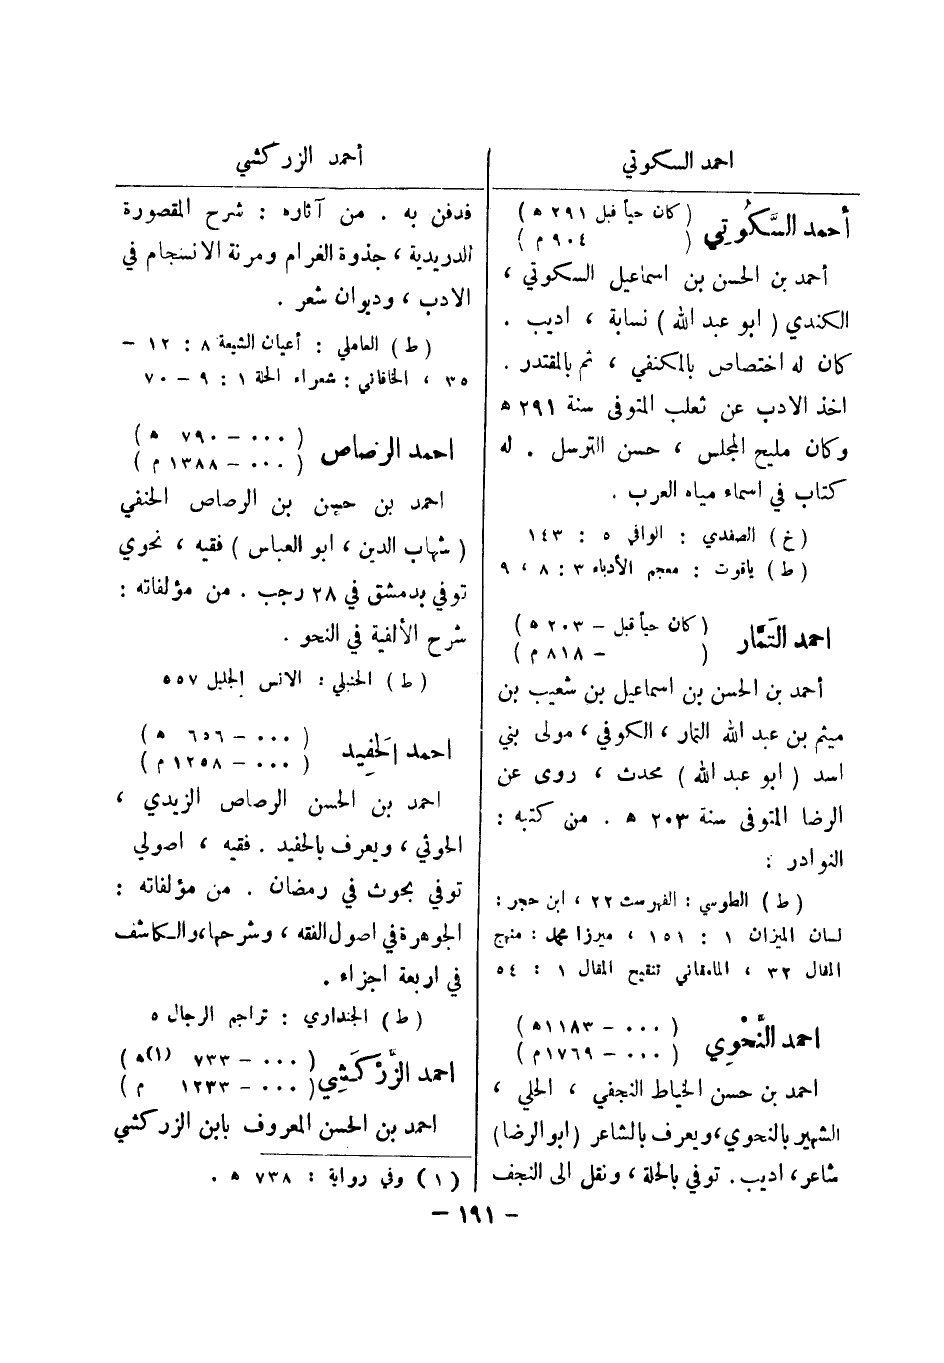 احمد السكوتي
أحمد السَّكُوتي
( كان حياً قبل ٢٩١ ه )
( ٩٠٤ م )
أحمد بن الحسن بن اسماعيل السكوتي ،
الكندي ( ابو عبد الله ) نسابة ، اديب .
كان له اختصاص بالمكنفي ، ثم بالمقتدر .
اخذ الادب عن ثعلب المتوفى سنة ٢٩١ ه
وكان مليح المجلس ، حسن الترسل . له
كتاب في اسماء مياه العرب .
( خ ) الصفدي : الوافي ٥ : ١٤٣
( ط ) ياقوت : معجم الأدباء ٣ : ٨ ، ٩
احمد التَمَّار
( كان حياً قبل – ٢٠٣ ه )
( – ٨١٨ م )
أحمد بن الحسن بن اسماعيل بن شعيب بن
ميثم بن عبد الله التمار ، الكوفي ، مولى بني
اسد ( ابو عبد الله ) محدث ، روى عن
الرضا المتوفى سنة ٢٠٣ ه . من كتبه :
النوادر :
( ط ) الطوسي : الفهرست ٢٢ ، ابن حجر :
لسان الميزان ١ : ١٥١ ، ميرزا محمد : منهج
المقال ٣٢ ، المامقاني تنقيح المقال ١ : ٥٤
احمد النَّحْوِي
( ٠٠٠ – ١١٨٣ه )
( ٠٠٠ – ١٧٦٩م )
احمد بن حسن الخياط النجفي ، الحلي ،
الشهير بالنحوي،ويعرف بالشاعر (ابو الرضا)
شاعر، اديب. توفي بالحلة ، ونقل الى النجف
أحمد الزركشي
فدفن به . من آثاره : شرح المقصورة
الدريدية ، جذوة الغرام ومزنة الانسجام في
الادب ، وديوان شعر .
( ط ) العاملي : أعيان الشيعة ٨ : ١٢ –
٣٥ ، الخاقاني : شعراء الحلة ١ : ٩ – ٧٠
احمد الرصاص
( ٠٠٠ – ٧٩٠ ه )
( ٠٠٠ – ١٣٨٨ م )
احمد بن حسين بن الرصاص الحنفي
( شهاب الدين ، ابو العباس ) فقيه ، نحوي
توفي بدمشق في ٢٨ رجب . من مؤلفاته :
شرح الألفية في النحو .
( ط ) الحنبلي : الانس الجليل ٥٥٧
احمد الحَفِيد
( ٠٠٠ – ٦٥٦ ه )
( ٠٠٠ – ١٢٥٨ م )
احمد بن الحسن الرصاص الزيدي ،
الحوثي ، ويعرف بالحفيد . فقيه ، اصولي
توفي بحوث في رمضان . من مؤلفاته :
الجوهرة في اصول الفقه ، وشرحها،والكاشف
في اربعة اجزاء .
( ط ) الجنداري : تراجم الرجال ٥
احمد الزَّرْكَشِي
( ٠٠٠ – ٧٣٣ (١)ه )
( ٠٠٠ – ١٢٣٣ م )
احمد بن الحسن المعروف بابن الزركشي
( ١ ) وفي رواية : ٧٣٨ ه .
– ١٩١ –